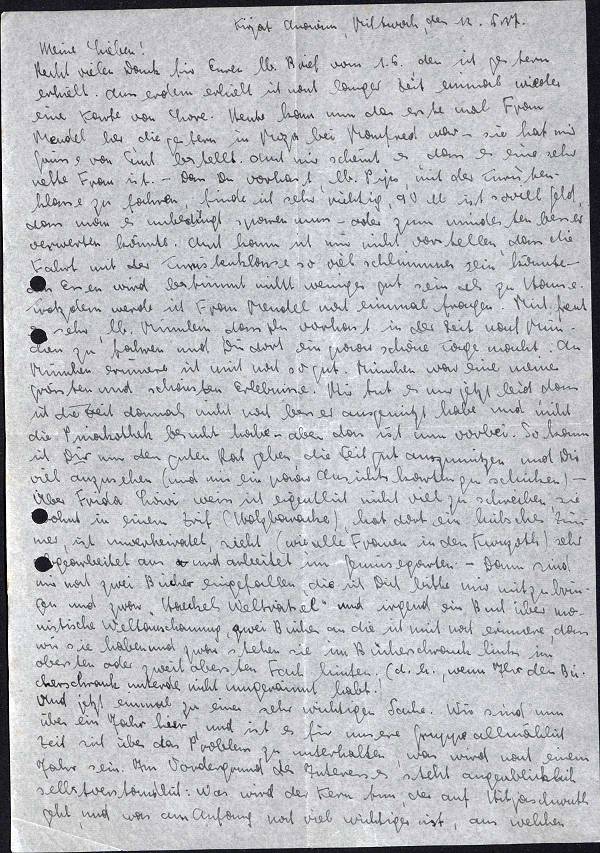 Kirjat Anavim, Mittwoch, den 12. 5.37.
Meine Lieben!
Recht vielen Dank für Euren lb. Brief vom 1.5. den ich gestern
erhielt. Ausserdem erhielt ich nach langer Zeit einmal wieder
eine Karte von Lore. Heute kam nun das erste mal Frau
Mendel her die gestern in bei Manfred war – sie hat mir
Grüsse von Euch bestellt. Auch mir scheint es dass es eine sehr
nette Frau ist. – Dass Du vorhast, lb. Pips, mit der Touristen-
klasse zu fahren, finde ich sehr richtig, 90 M ist soviel Geld,
dass man es unbedingt sparen muss – oder zum mindesten besser
verwerten könnte. Auch kann ich mir nicht vorstellen, dass die
Fahrt mit der Touristenklasse so viel schlimmer sein könnte –
Essen wird bestimmt nicht weniger gut sein als zu Hause.
trotzdem werde ich Frau Mendel noch einmal fragen. Mich freut
es sehr, lb. dass Du vorhast in der Zeit nach Mün-
chen zu fahren und Dir dort ein paar schöne Tage machst. An
München erinnere ich mich noch so gut. München war eine meiner
grössten und schönsten Erlebnisse. Mir tut es nur jetzt leid dass
ich die Zeit damals nicht noch besser ausgenützt habe und nicht
die Pinakothek besucht habe – aber das ist nun vorbei. So kann
ich Dir nur den guten Rat geben die Zeit gut auszunützen und Dir
viel anzusehen (und mir ein paar Ansichtskarten zu schicken) –
Über Frida Löwi weiss ich eigentlich nicht viel zu schreiben sie
wohnt in einem Zrif (Holzbaracke), hat dort ein hübsches Zim-
mer, ist unverheiratet, sieht (wie alle Frauen in den Kwuzoth) sehr
abgearbeitet aus und arbeitet im Gemüsegarten. – Dann sind
mir noch zwei Bücher eingefallen die ich Dich bitte mir mitzubrin-
gen und zwar „Haeckels Welträtsel" und irgend ein Buch über mo-
nistische Weltanschauung, zwei Bücher an die ich mich noch erinnere, dass
wir sie haben und zwar stehen sie im Bücherschrank links im
obersten oder zweit obersten Fach hinten. (d.h., wenn Ihr den Bü-
cherschrank nicht umgeräumt habt.)
Und jetzt einmal zu einer sehr wichtigen Sache. Wir sind nun
über ein Jahr hier, und ist es für unsere Gruppe allmählich
Zeit sich über das Problem zu unterhalten, was wird nach einem
Jahr sein. Im Vordergrund des Interesses steht augenblicklich
selbstverständlich: Was wird der Kern tun der auf Hitjaschwuth
geht, und was am Anfang noch viel wichtiger ist, aus welchen